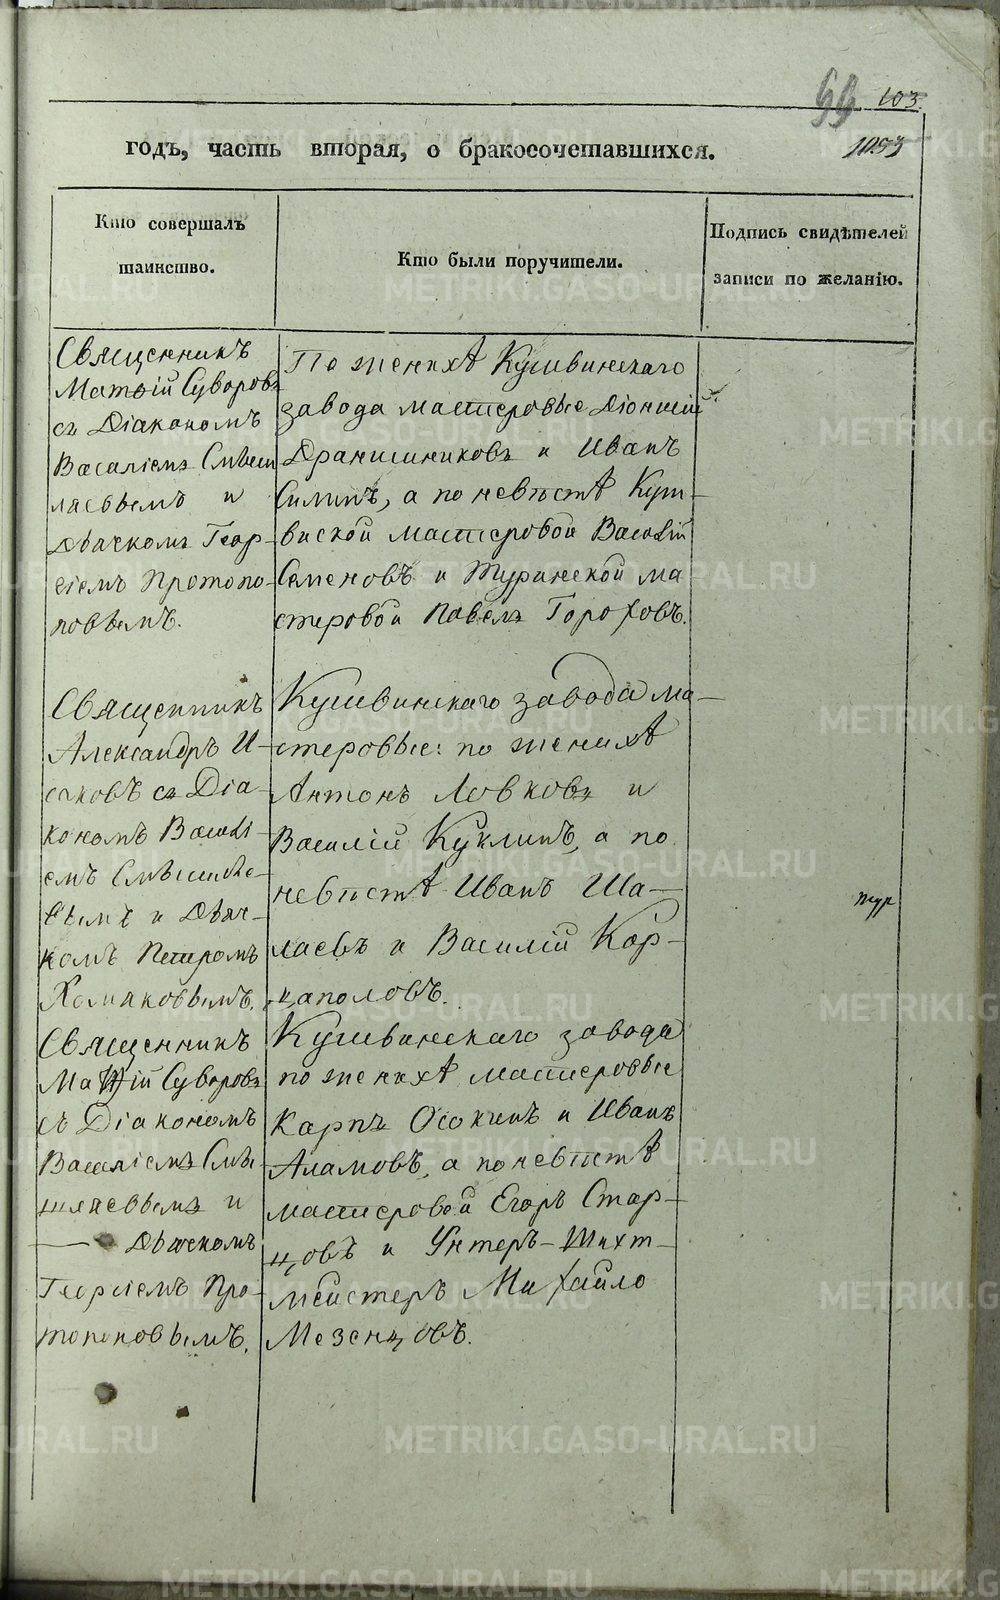 103
1053
годъ, часть вторая, о бракосочетавшихся.
Кто совершалъ
таинство.
Кто были поручители.
Подпись свидѣтелей
записи по желанію.
Священникъ
Матѳій Суворовъ
съ Діакономъ
Василіемъ Смыш
ляевымъ и
Дьячкомъ Геор-
гіемъ Протопо-
повымъ.
По женихѣ Кушвинскаго
завода мастеровые Діонисій
Дранишниковъ и Иванъ
Силинъ, а по невѣстѣ Куш-
винской мастеровой Василій
Семеновъ и Туринской ма
стеровой Павелъ Гороховъ.
Священникъ
Александръ И-
саковъ съ Діа-
кономъ Василі-
емъ Смышляе-
вымъ и Дьяч-
комъ Петромъ
Хомяковымъ.
Кушвинскаго завода ма-
стеровые: по женихѣ
Антонъ Ловковъ и
Василій Куклинъ, а по
невѣстѣ Иванъ Ша-
лаевъ и Василій Кар-
цаполовъ.
тур
Священникъ
Матѳій Суворовъ
съ Діакономъ
Василіемъ Смы-
шляевымъ и
Дьячкомъ
Георгіемъ Про-
топоповымъ.
Кушвинскаго завода
по женихѣ мастеровые
Карпъ Осокинъ и Иванъ
Аламовъ, а по невѣстѣ
мастеровой Егоръ Стар-
цовъ и Унтеръ-Шихт-
мейстеръ Михайло
Мезенцовъ.
METRIKI.GASO-URAL.RU